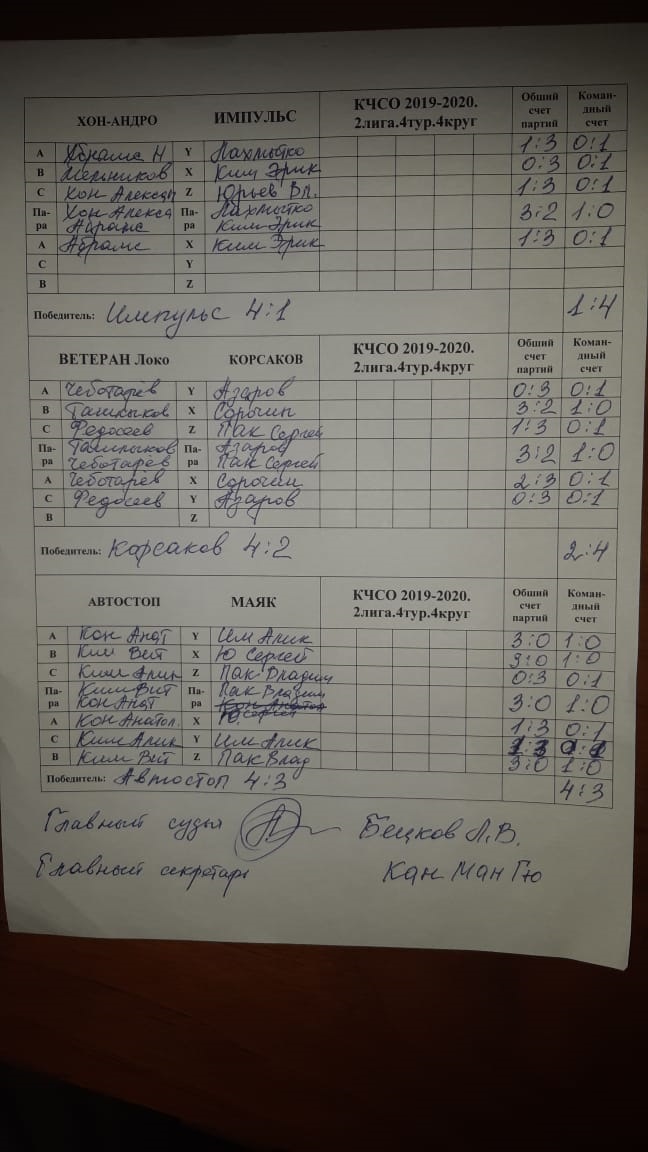 ХОН-АНДРО ИМПУЛЬС КЧСО 2019-2020. 2лига.4тур.4круг Общий счет партий Коман-дный счет
A Абрамс Н Y Лахмытко 1:3 0:1
B Мельников X Ким Эрик 0:3 0:1
C Хон Александ Z Юрьев Вл. 1:3 0:1
Па-ра Хон Алекса Па-ра Лахмытко 3:2 1:0
Абрамс Ким Эрик
A Абрамс X Ким Эрик 1:3 0:1
C Y
B Z
Победитель: Импульс 4:1 1:4
ВЕТЕРАН Локо КОРСАКОВ КЧСО 2019-2020. 2лига.4тур.4круг Общий счет партий Коман-дный счет
A Чеботарёв Y Азаров 0:3 0:1
B Ташлыков X Сорочин 3:2 1:0
C Федосеев Z Пак Сергей 1:3 0:1
Па-ра Ташлыков Па-ра Азаров 3:2 1:0
Чеботарёв Пак Сергей
A Чеботарёв X Сорочин 2:3 0:1
C Федосеев Y Азаров 0:3 0:1
B Z
Победитель: Корсаков 4:2 2:4
АВТОСТОП МАЯК КЧСО 2019-2020. 2лига.4тур.4круг Общий счет партий Коман-дный счет
A Кон Анат Y Им Алик 3:0 1:0
B Ким Вит X Ю Сергей 3:0 1:0
C Ким Алик Z Пак Владим 0:3 0:1
Па-ра Ким Вит Па-ра Пак Владим 3:0 1:0
Кон Анат Ю Сергей
A Кон Анатол. X 1:3 0:1
C Ким Алик Y Им Алик 1:3 0:1
B Ким Вит Z Пак Влад 3:0 1:0
Победитель: Автостоп 4:3 4:3
Главный судья Бецков Л.В.
Главный секретарь Кан Ман Гю